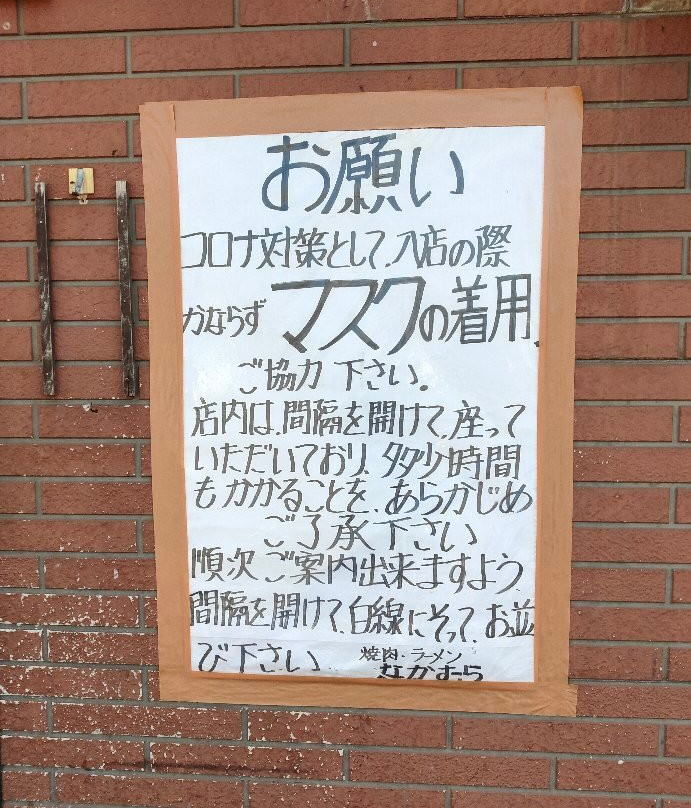 お願い
コロナ対策として、入店の際
かならず マスクの着用、
ご協力 下さい。
店内は、間隔を開けて、座って
いただいており、多少時間
もかかることを、あらかじめ
ご了承下さい
順次 ご案内出来ますよう
間隔を開けて、白線にそって、お並
び下さい
焼肉・ラーメン
なかむら